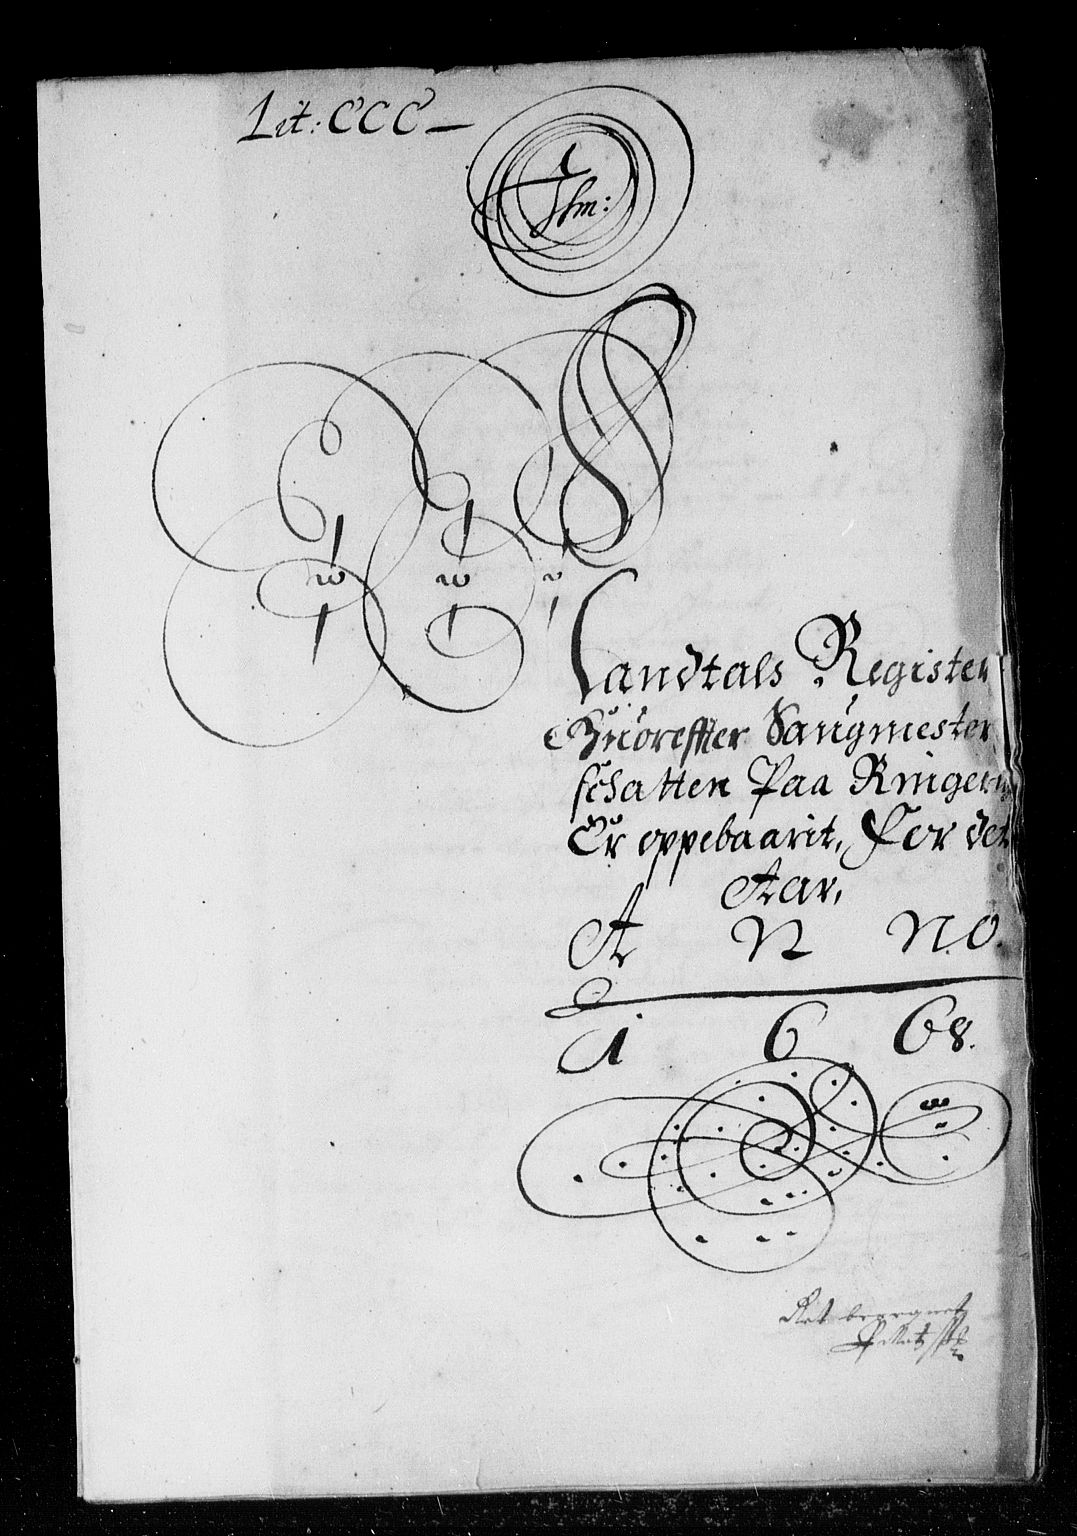 Lit: CCC
Jhm:
Mandtals Register
Huoreffter Saugmester
schatten Paa Ringerig
Er oppebaarit, For det
Aar,
A N N O.
1 6 68.
Ret beregnet